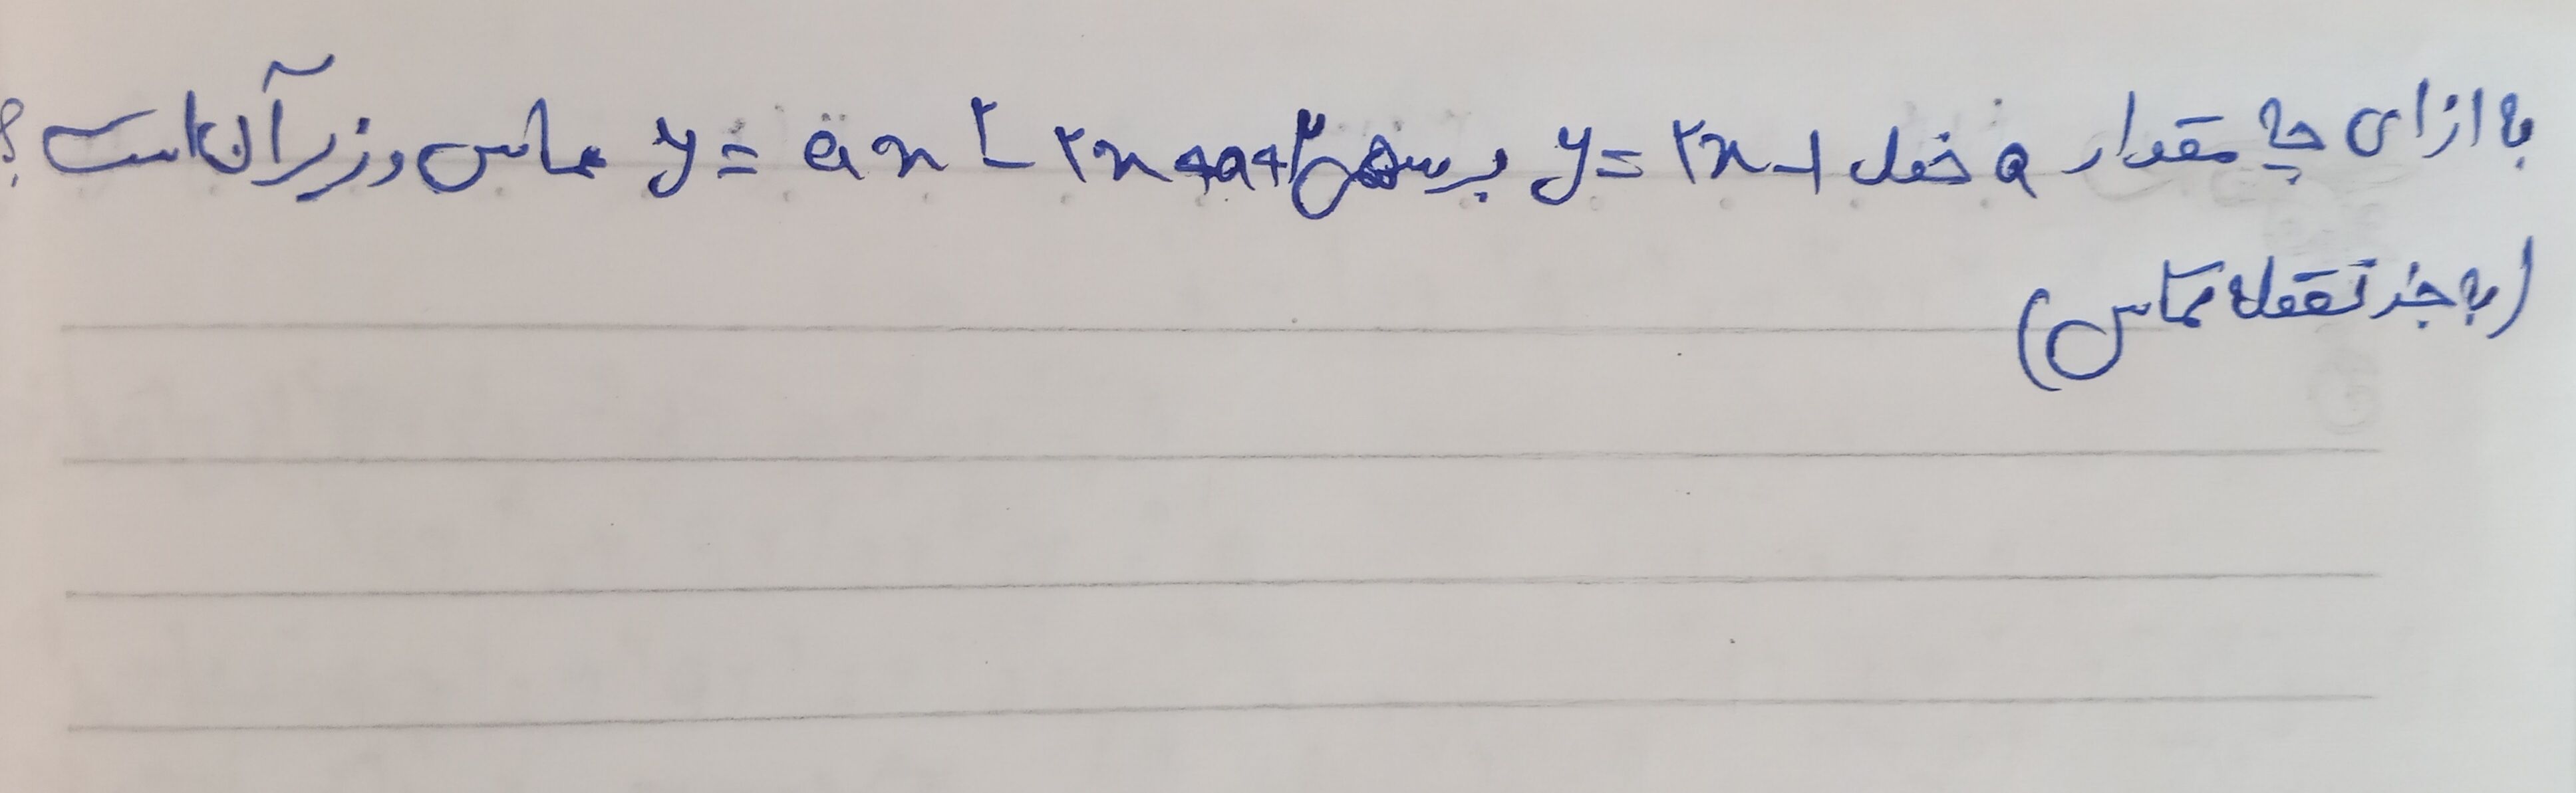 به ازای چه مقدار a خط y = ۲x - ۱ بر سهمی y = ax^۲ - ۲x + a + ۲ مماس و زیر آن است؟
(به جز نقطه تماس)